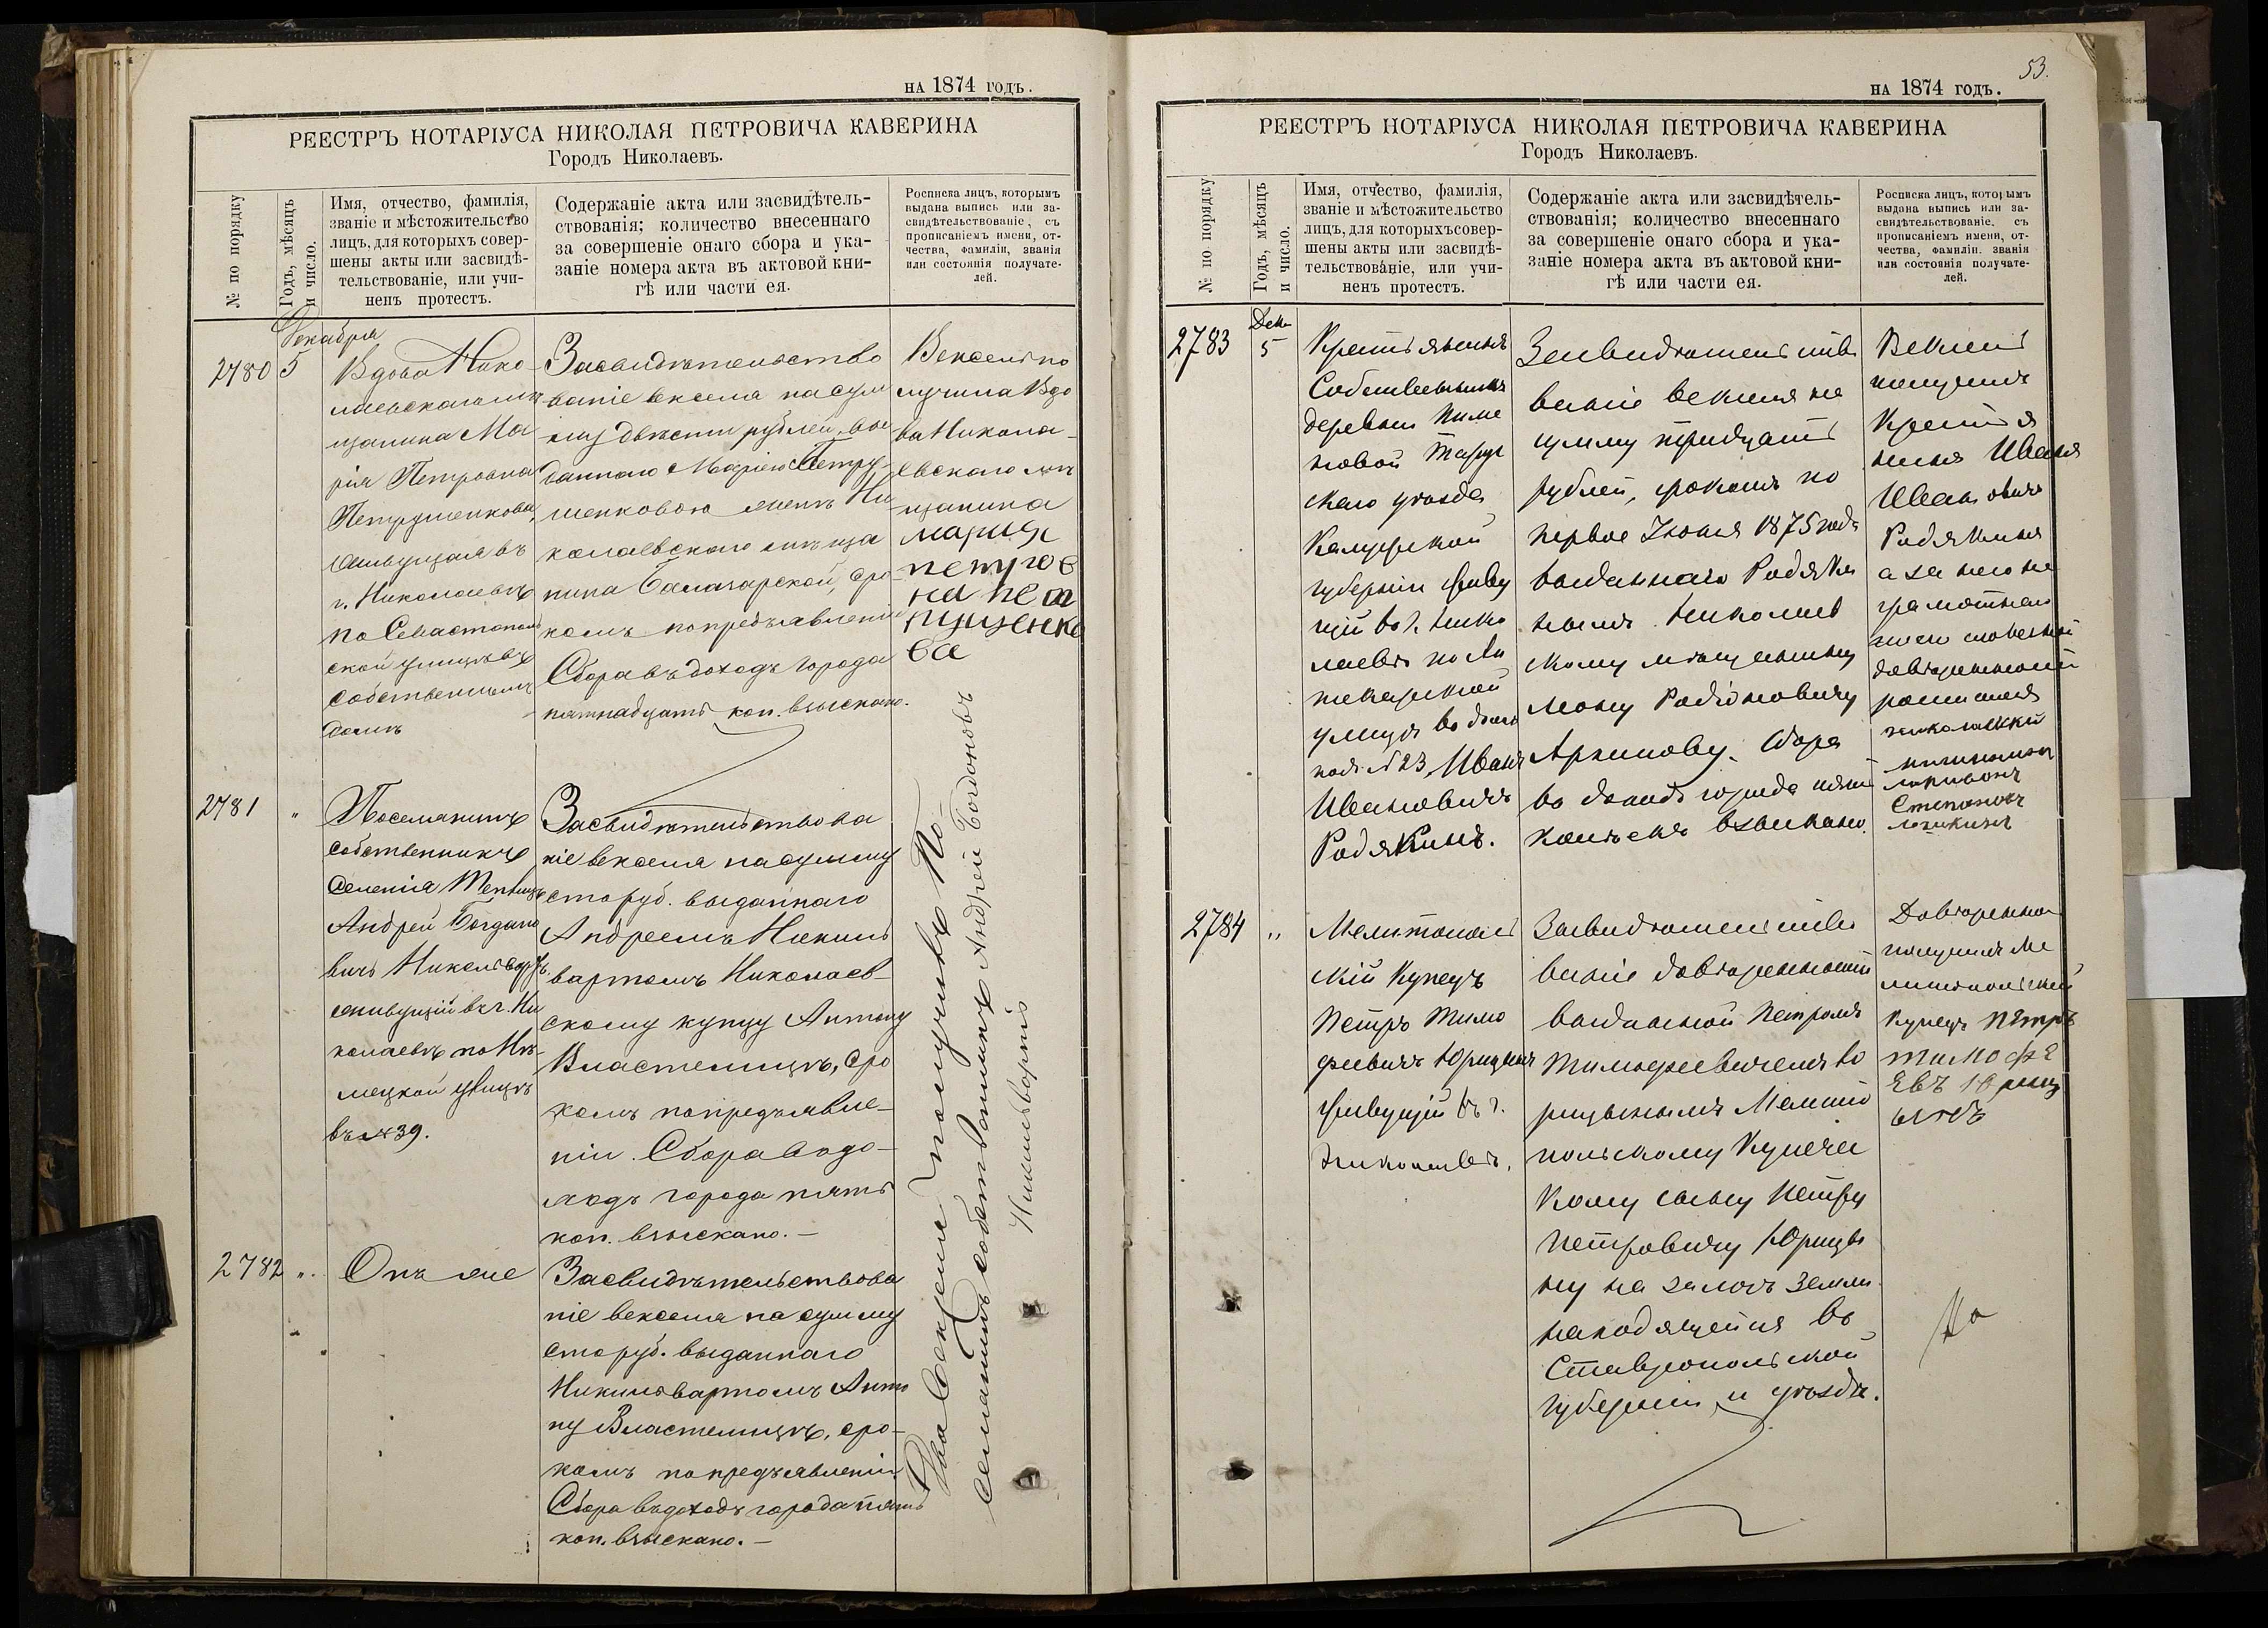 НА 1874 ГОДЪ.
РЕЕСТРЪ НОТАРІУСА НИКОЛАЯ ПЕТРОВИЧА КАВЕРИНА
Городъ Николаевъ.
№ по порядку
Годъ, мѣсяцъ
и число.
Имя, отчество, фамилія,
званіе и мѣстожительство
лицъ, для которыхъ совер-
шены акты или засвидѣ-
тельствованіе, или учи-
ненъ протестъ.
Содержаніе акта или засвидѣтель-
ствованія; количество внесеннаго
за совершеніе онаго сбора и ука-
заніе номера акта въ актовой кни-
гѣ или части ея.
Росписка лицъ, которымъ
выдана выпись или за-
свидѣтельствованіе, съ
прописаніемъ имени, от-
чества, фамиліи, званія
или состоянія получате-
лей.
Декабря
2780
5
Вдова Нико-
лаевскаго мѣ
щанина Ма
рія Петровна
Петрушенкова,
живущая въ
г. Николаевѣ
по Севастополь
ской улицѣ въ
собственномъ
домѣ
Засвидѣтельство
ваніе векселя на сум
му двѣсти рублей, вы
даннаго Маріею Петру
шенковою женѣ Ни
колаевскаго мѣща
нина сро-
комъ по предъявленіи
Сбора въ доходъ города
пятнадцать коп. взыскано.
Вексель по
лучила Вдо
ва Никола-
евскаго мѣ
щанина
мария
петров
на пет
рушенко
ва
2781
"
Поселянинъ
собственникъ
Селенія
Андрей Богдано
вичъ Никельвартъ
живущій въ г. Ни
колаевѣ по Нѣ-
мецкой улицѣ
въ № 39.
Засвидѣтельствова
ніе векселя на сумму
сто руб. выданнаго
Андреемъ Никель
вартомъ Николаев-
скому купцу Антону
Властелицѣ, сро
комъ по предъявле-
ніи. Сбора въ до-
ходъ города пять
коп. взыскано. —
2782
"
Онъ же
Засвидѣтельствова
ніе векселя на сумму
сто руб. выданнаго
Никельвартомъ Анто
ну Властелицѣ, сро-
комъ по предъявленіи.
Сбора въ доходъ города пять
коп. взыскано. —
Два векселя получилъ По
селянинъ собственникъ Андрей Богдановъ
Никельвартъ
53.
НА 1874 ГОДЪ.
РЕЕСТРЪ НОТАРІУСА НИКОЛАЯ ПЕТРОВИЧА КАВЕРИНА
Городъ Николаевъ.
№ по порядку
Годъ, мѣсяцъ
и число.
Имя, отчество, фамилія,
званіе и мѣстожительство
лицъ, для которыхъ совер-
шены акты или засвидѣ-
тельствованіе, или учи-
ненъ протестъ.
Содержаніе акта или засвидѣтель-
ствованія; количество внесеннаго
за совершеніе онаго сбора и ука-
заніе номера акта въ актовой кни-
гѣ или части ея.
Росписка лицъ, которымъ
выдана выпись или за-
свидѣтельствованіе, съ
прописаніемъ имени, от-
чества, фамиліи, званія
или состоянія получате-
лей.
2783
Дек
5
Крестьянинъ
Собственникъ
деревни Пиме
новой Тарус
скаго уѣзда
Калужской
губерніи живу
щій въ г. Нико
лаевѣ по Ап
текарской
улицѣ въ домѣ
подъ № 23, Иванъ
Ивановичъ
Родякинъ.
Засвидѣтельство
ваніе векселя на
сумму тридцать
рублей, срокомъ по
первое Іюня 1875 года
выданнаго Родяки
нымъ Николаев
скому мѣщанину
Родіоновичу
Архипову. Сбора
въ доходъ города пять
копѣекъ взыскано.
Вексель
получилъ
Крестья
нинъ Иванъ
Ивановичъ
Родякинъ
а за него не
грамотнаго
по его словесной
довѣренности
росписался
Степановъ
2784
"
Мелитополь
скій Купецъ
Петръ Тимо
феевичъ Юрицынъ
живущій въ г.
Николаевѣ.
Засвидѣтельство
ваніе довѣренности
выданной Петромъ
Тимофеевичемъ Ю
рицынымъ Мелито
польскому Купечес
кому сыну Петру
Петровичу Юрицы
ну на залогъ земли
находящейся въ
Ставропольской
губерніи и уѣздѣ.
Довѣренность
получилъ Ме
литопольскій
Купецъ Пѣтръ
тимофѣ
евъ Юриц
ынъ